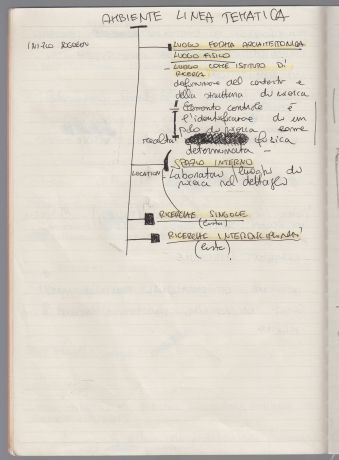 AMBIENTE LINEA TEMATICA
INIZIO
LUOGO FORMA ARCHITETTONICA
LUOGO FISICO
- LUOGO COME ISTITUTO DI
RICERCA
definizione del contesto e
della struttura di ricerca
Elemento centrale è
l'identificazione di un
polo di ricerca come
realtà fisica
determinata -
SPAZIO INTERNO
LOCATION
Laboratori luoghi di
ricerca nel dettaglio
RICERCHE SINGOLE
(lista)
RICERCHE INTERDISCIPLINARI
(lista)